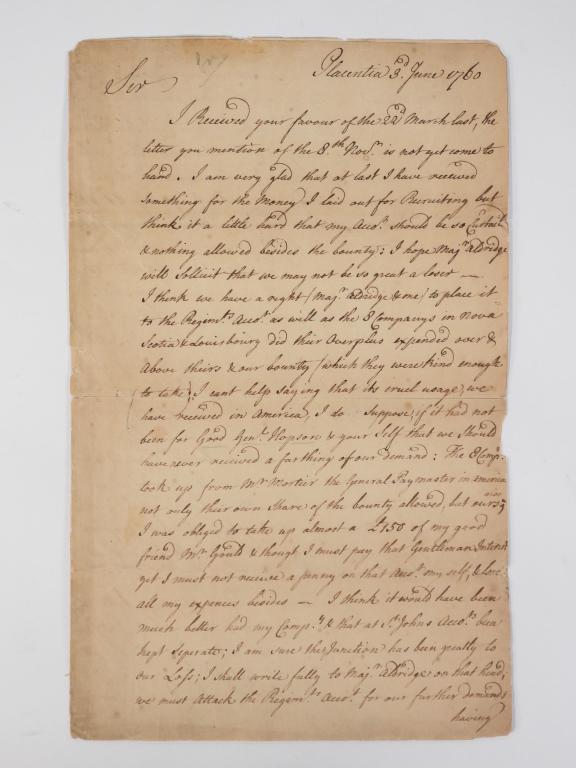 Placentia 3d. June 1760
Sir
I Received your favour of the 22d March last, the
letter you mention of the 8th. Novr. is not yet come to
hand. I am very glad that at last I have received
something for the Money I laid out for Recruiting but
think it a little hard that my Accot. should be so Curtail
& nothing allowed besides the bounty; I hope Majr. Aldridge
will sollicit that we may not be so great a loser —
I think we have a right (Majr. Aldridge & me) to place it
to the Regimts. Accot. as well as the 8 Companys in Nova
Scotia & Louisbourg did their Overplus expended over &
Above theirs & our bounty (which they were kind enough
to take); I cant help saying that its cruel usage, we
have received in America, I do Suppose, if it had not
been for Good Genl. Hopson & your Self that we should
have never received a farthing of our demand: The 8 Comps.
took up from Mr. Mortier the General Paymaster in America
not only their own Share of the bounty allowed, but ours
also
I was obliged to take up almost a £150 of my good
friend Mr. Gould & though I must pay that Gentleman Interest
yet I must not receive a penny on that Accot. my self, & Lose
all my expences besides — I think it would have been
much better had my Compy. & that at St. Johns Accots. been
kept Seperate; I am sure this Junction has been greatly to
our Loss; I shall write fully to Majr. Aldridge on that head;
we must Attack the Regimts. Accot. for our further demands
having